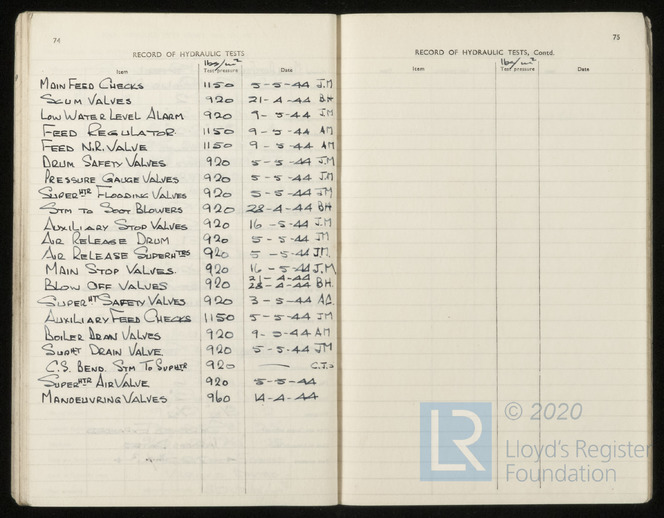 74
RECORD OF HYDRAULIC TESTS
lbs/in²
Item Test pressure Date
MAIN FEED CHECKS 1150 5-5-44 J.M
SCUM VALVES 920 21-4-44 BH
LOW WATER LEVEL ALARM 920 9-5-44 JM
FEED REGULATOR 1150 9-5-44 AM
FEED N.R. VALVE 1150 9-5-44 AM
DRUM SAFETY VALVES 920 5-5-44 J.M
PRESSURE GAUGE VALVES 920 5-5-44 J.M
SUPERHTR FLOODING VALVES 920 5-5-44 JM
STM TO SOOT BLOWERS 920 28-4-44 BH
AUXILIARY STOP VALVES 920 16-5-44 J.M
AIR RELEASE DRUM 920 5-5-44 JM
AIR RELEASE SUPERHTRS 920 5-5-44 JM.
MAIN STOP VALVES. 920 16-5-44 J.M
21-4-44
BLOW OFF VALVES 920 28-4-44 BH.
SUPERHT SAFETY VALVES 920 3-5-44
AUXILIARY FEED CHECKS 1150 5-5-44 JM
BOILER DRAIN VALVES 920 9-5-44 AM
SUPHT DRAIN VALVE 920 5-5-44 JM
C.S. BEND. STM TO SUPHTR 920 —
SUPERHTR AIR VALVE 920 5-5-44
MANOEUVRING VALVES 960 14-4-44
75
RECORD OF HYDRAULIC TESTS, Contd.
lbs/in²
Item Test pressure Date
LR
© 2020
Lloyd's Register
Foundation